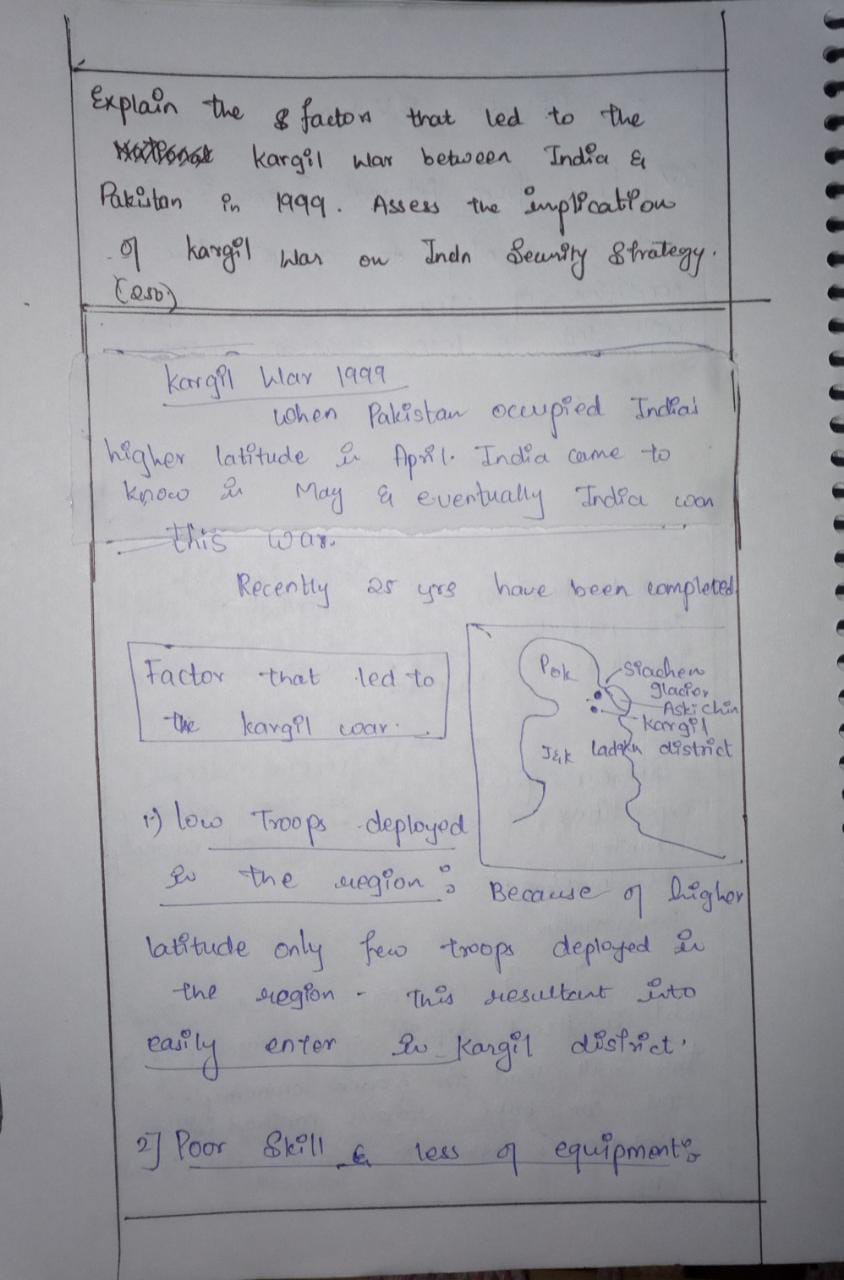 Explain the & factors that led to the
Kargil War between India &
Pakistan in 1999. Assess the implication
of Kargil War on Indn Security Strategy.
(250)
Kargil War 1999
When Pakistan occupied India's
higher latitude in April. India came to
know in May & eventually India won
this war.
Recently 25 yrs have been completed
Factor that led to
the kargil war.
Pok
Siachen
glacior
Aski chin
Kargil
J&K ladakh district
1) low Troops deployed
in the region: Because of higher
latitude only few troops deployed in
the region. This resultant into
easily enter in Kargil district.
2] Poor Skill & less of equipments